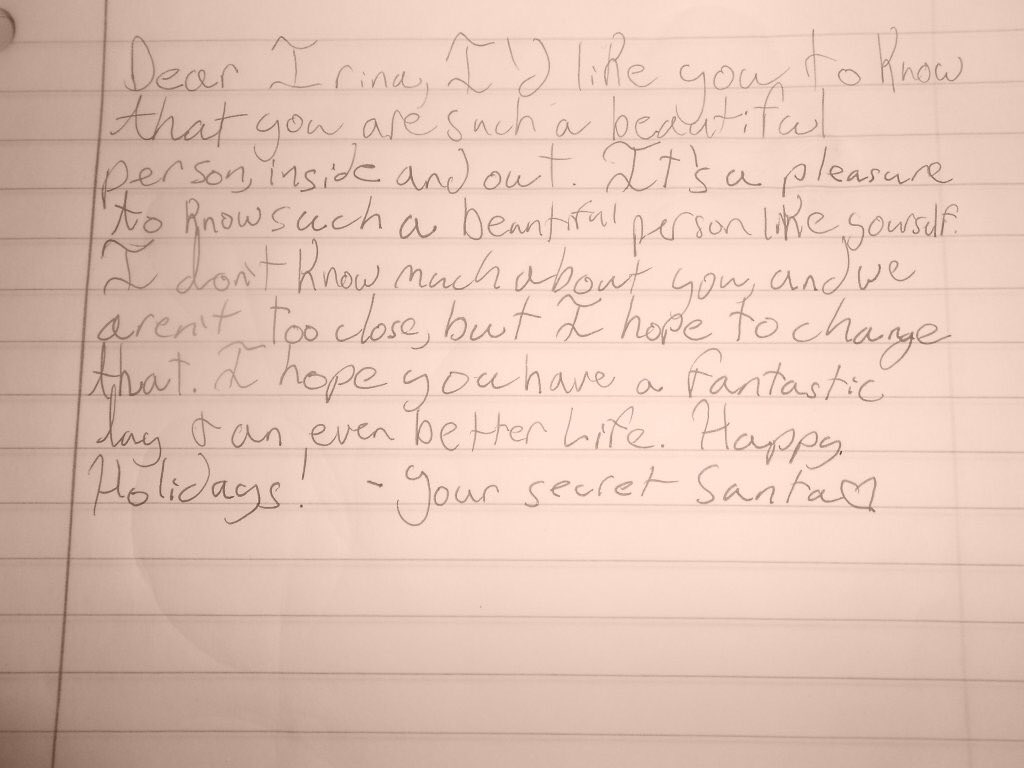 Dear Irina, I'd like you to know
that you are such a beautiful
person, inside and out. It's a pleasure
to know such a beautiful person like yourself.
I don't know much about you, and we
aren't too close, but I hope to change
that. I hope you have a fantastic
day & an even better life. Happy
Holidays! - Your secret Santa♡